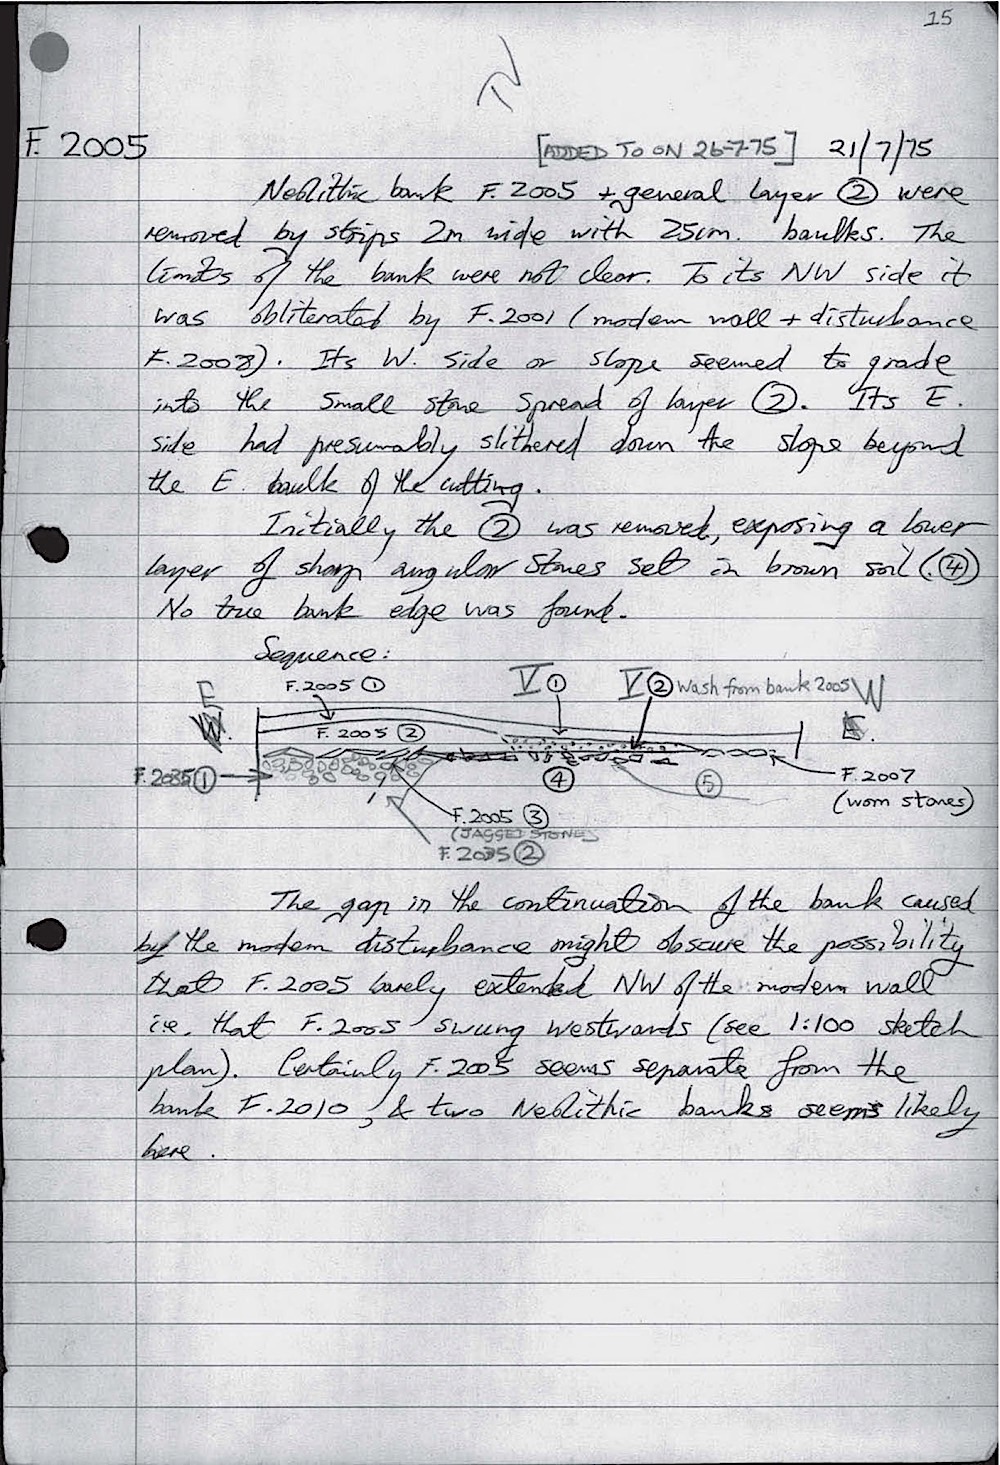 15
F. 2005
[ADDED TO ON 26-7-75] 21/7/75
Neolithic bank F. 2005 + general layer ② were
removed by strips 2m wide with 25cm. baulks. The
limits of the bank were not clear. To its NW side it
was obliterated by F.2001 (modern wall + disturbance
F.2008). Its W. side or slope seemed to grade
into the small stone spread of layer ②. Its E.
side had presumably slithered down the slope beyond
the E. baulk of the cutting.
Initially the ② was removed, exposing a lower
layer of sharp angular stones set in brown soil (④)
No true bank edge was found.
Sequence:
E
W.
F.2005 ①
V ①
V ② Wash from bank 2005
W
E.
F. 2005 ②
F.2035 ①
④
⑤
F.2007
(worn stones)
F.2005 ③
(JAGGED STONES)
F. 2035 ②
The gap in the continuation of the bank caused
by the modern disturbance might obscure the possibility
that F. 2005 barely extended NW of the modern wall
i.e. that F. 2005 swung westwards (see 1:100 sketch
plan). Certainly F. 2005 seems separate from the
bank F.2010, & two Neolithic banks seems likely
here.